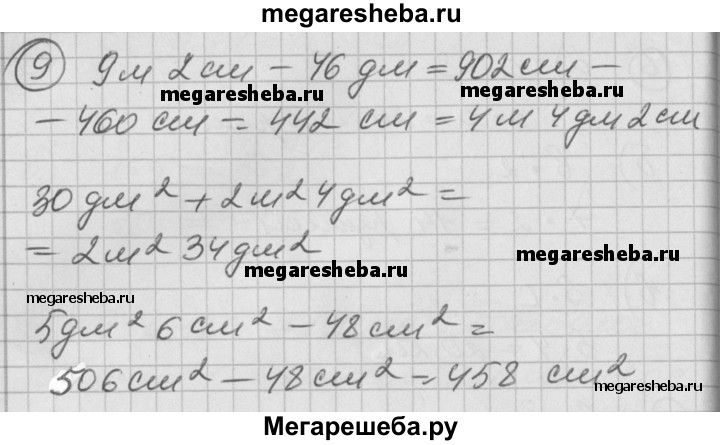 megaresheba.ru
9 9м 2см - 46 дм = 902см -
megaresheba.ru megaresheba.ru
- 460 см = 442 см = 4м 4дм 2см
30 дм² + 2м² 4дм² =
= 2м² 34дм²
megaresheba.ru megaresheba.ru
megaresheba.ru
5дм² 6см² - 48см² =
506см² - 48см² = 458 см²
megaresheba.ru megaresheba.ru
Мегарешеба.ру